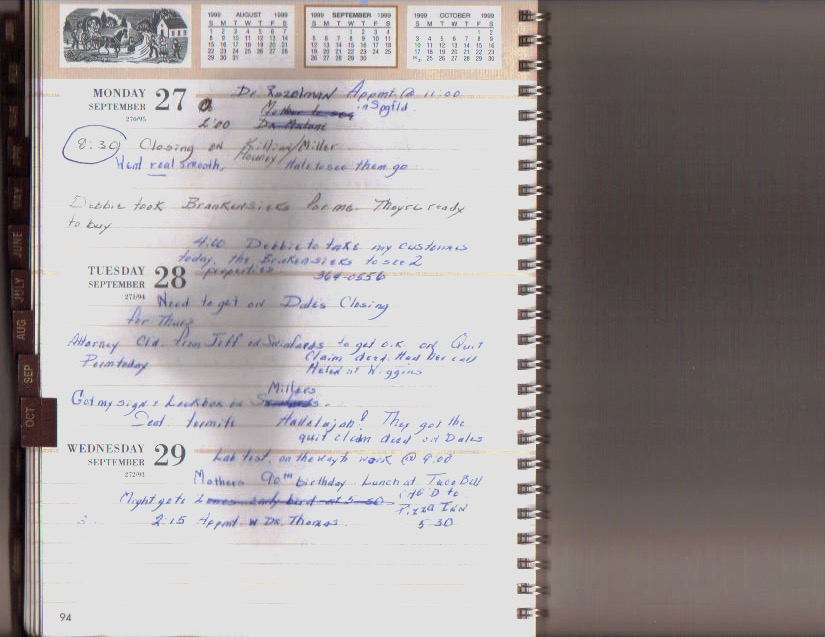 1999 AUGUST 1999
S M T W T F S
1 2 3 4 5 6 7
8 9 10 11 12 13 14
15 16 17 18 19 20 21
22 23 24 25 26 27 28
29 30 31
1999 SEPTEMBER 1999
S M T W T F S
1 2 3 4
5 6 7 8 9 10 11
12 13 14 15 16 17 18
19 20 21 22 23 24 25
26 27 28 29 30
1999 OCTOBER 1999
S M T W T F S
1 2
3 4 5 6 7 8 9
10 11 12 13 14 15 16
17 18 19 20 21 22 23
25 26 27 28 29 30
MONDAY 27
SEPTEMBER
270/95
Dr Rozelman Appmt. @ 11:00
Mother to see in Spfld.
2:00 Dr.
8:30 Closing on Killian/Miller
Howey
Went real smooth. Hate to see them go
Debbie took Brankensieks for me. They're ready
to buy
4:00 Debbie to take my customers
today, the Brakensieks to see 2
properties 364-0556
TUESDAY 28
SEPTEMBER
271/94
Need to get on Dales Closing
for Thurs
Attorney Cld. from Jeff on to get O.K. on Quit
Claim deed. Had her call
Helen at Wiggins
Perm today
Millers
Got my sign & Lockbox on
Seal. termite Hallelujah! They got the
quit claim deed on Dales
WEDNESDAY 29
SEPTEMBER
272/93
Lab test, on the way to work @ 9:00
Mothers 90th birthday. Lunch at Taco Bill
Might go to early bird at 5:30 to
Pizza Inn
5:30
2:15 Appmt. w Dr. Thomas
94
JUNE
JULY
AUG
SEP
OCT